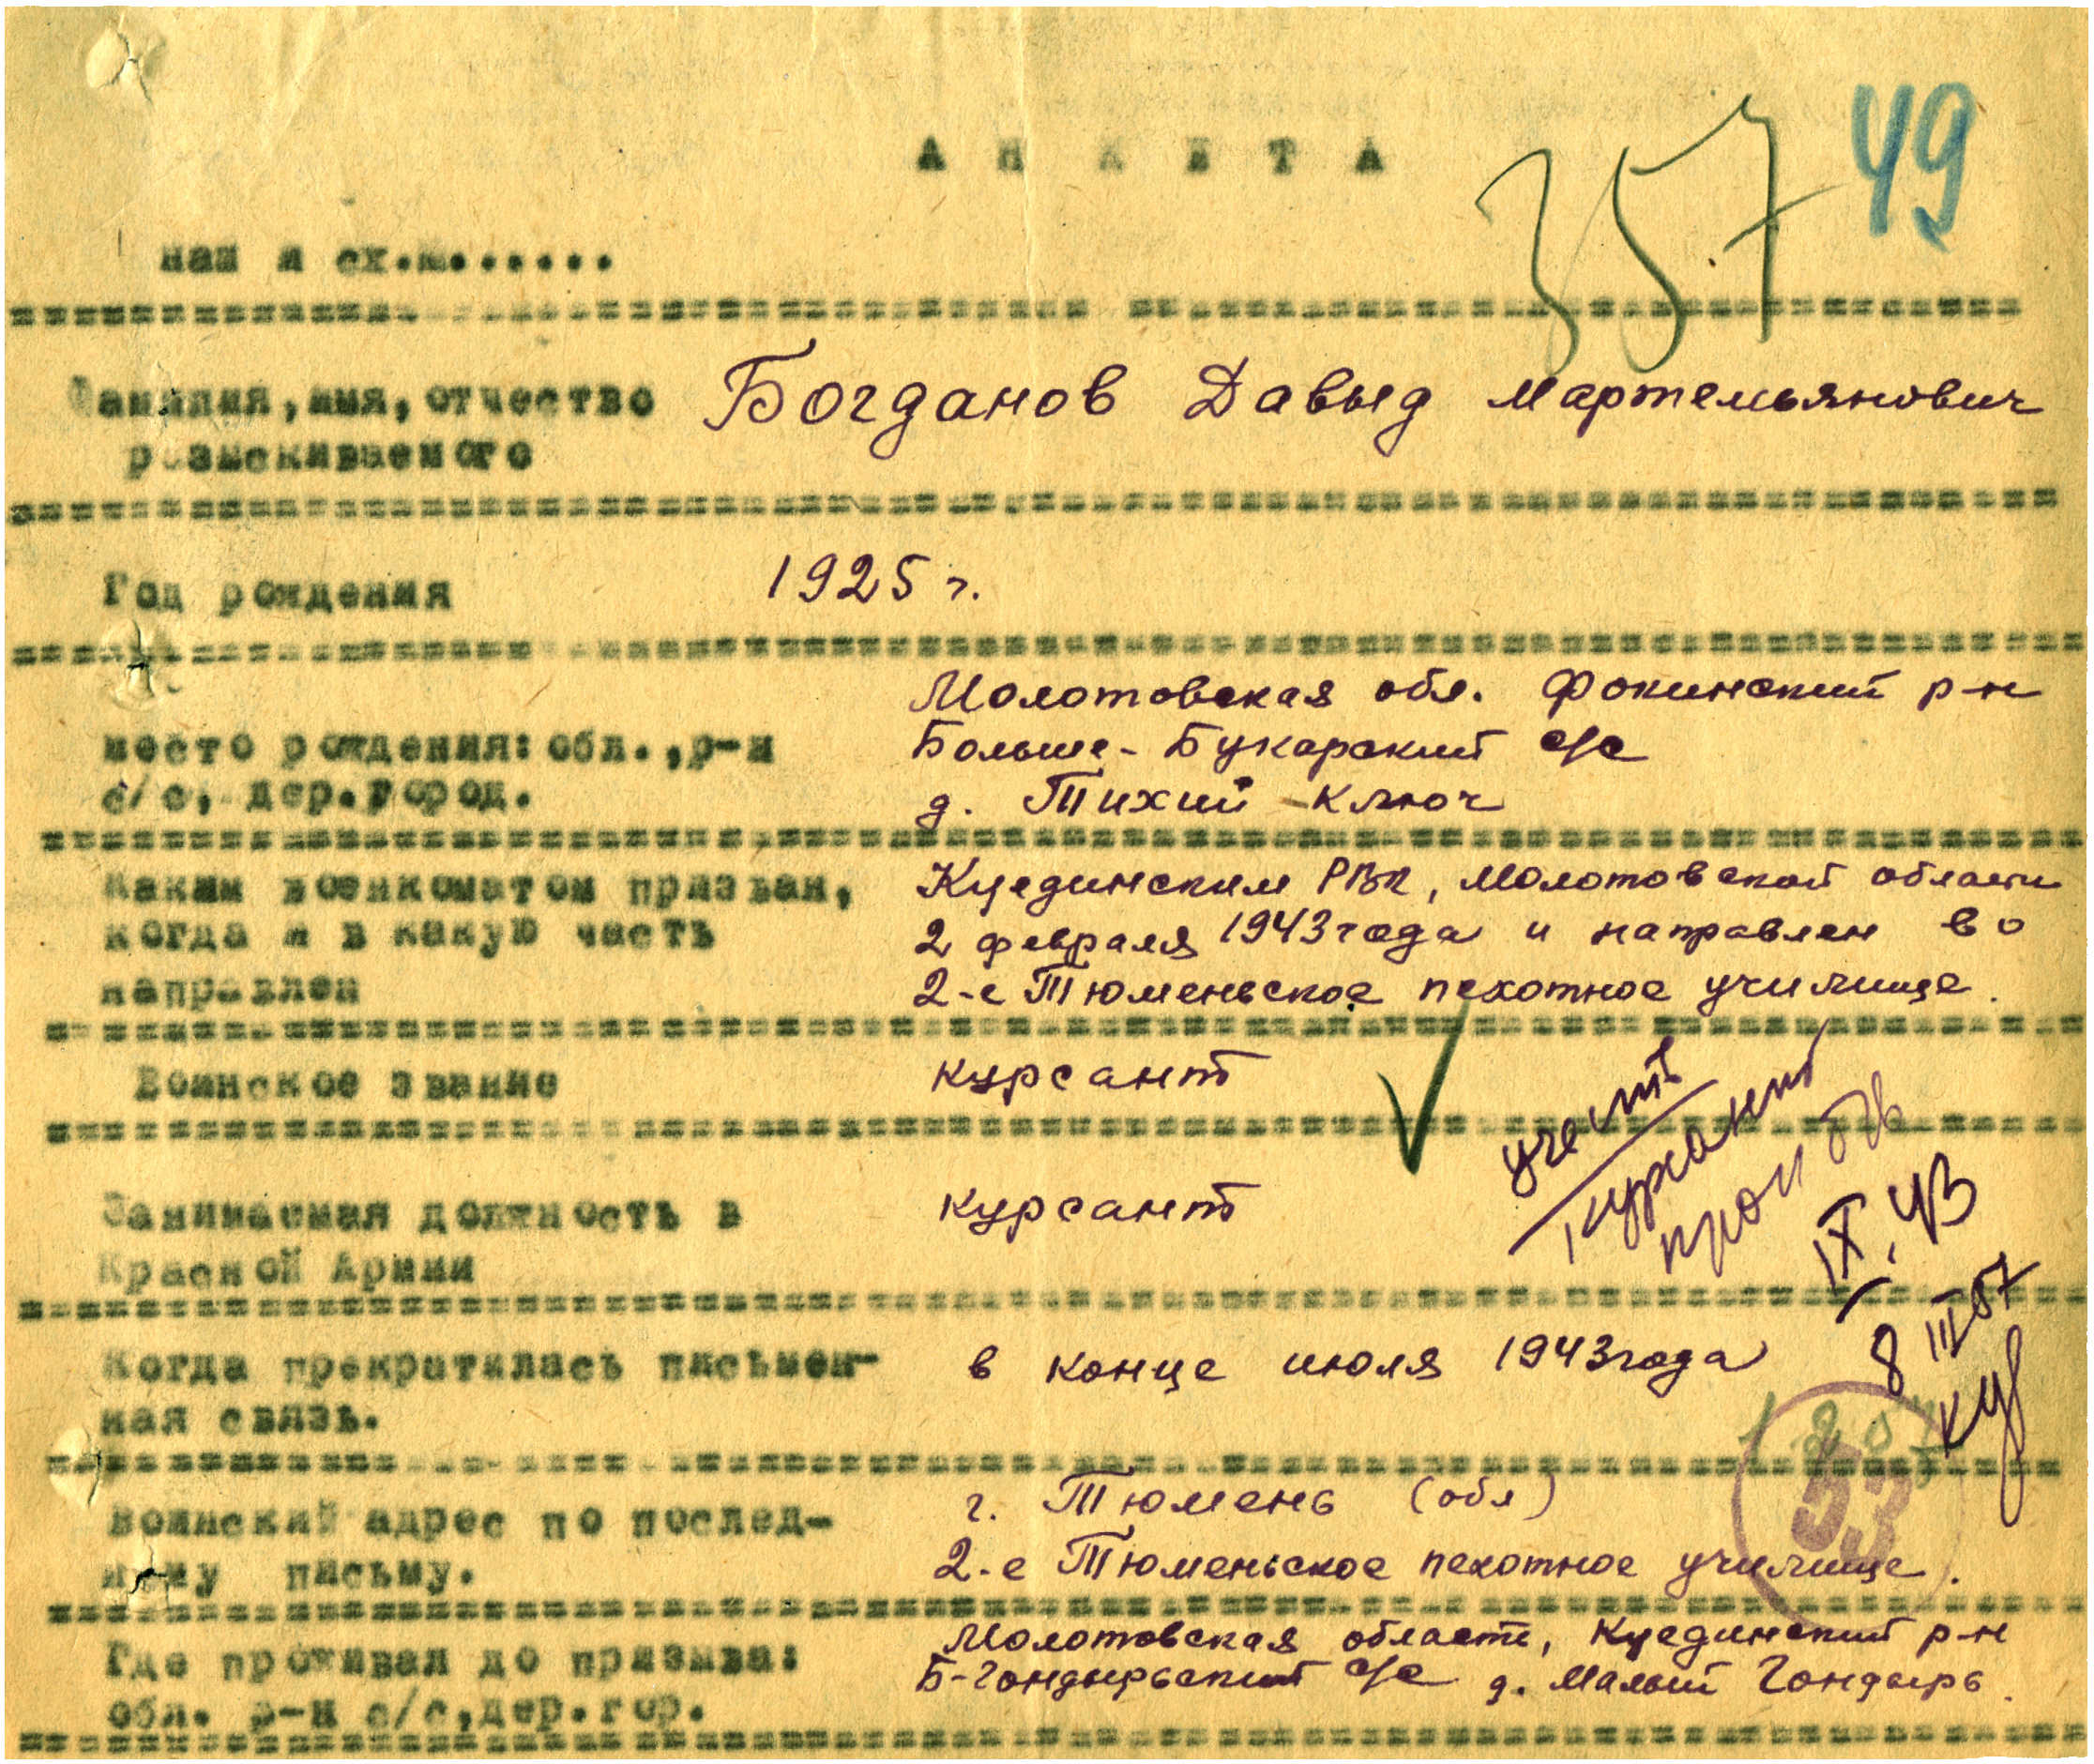 А Н К Е Т А
357 49
наш и сх.№......
Фамилия, имя, отчество Богданов Давыд Мартемьянович
розыскиваемого
Год рождения 1925 г.
Молотовская обл. Фокинский р-н
место рождения: обл., р-н Больше-Букорский с/с
с/с, дер. город. д. Тихий Ключ
Каким военкоматом призван, Куединским РВК, Молотовской области
когда и в какую часть 2 февраля 1943 года и направлен во
направлен 2-е Тюменьское пехотное училище.
Воинское звание курсант
Занимаемая должность в курсант
Красной Армии
учесть
курсант
проп б/в
IX.43
8 III 57
Когда прекратилась письмен- в конце июля 1943 года
ная связь.
53
Воинский адрес по послед- г. Тюмень (обл)
нему письму. 2-е Тюменьское пехотное училище.
Где проживал до призыва: Молотовская области, Куединский р-н
обл. р-н с/с, дер. гор. Б-Гондырьский с/с д. Малый Гондырь.